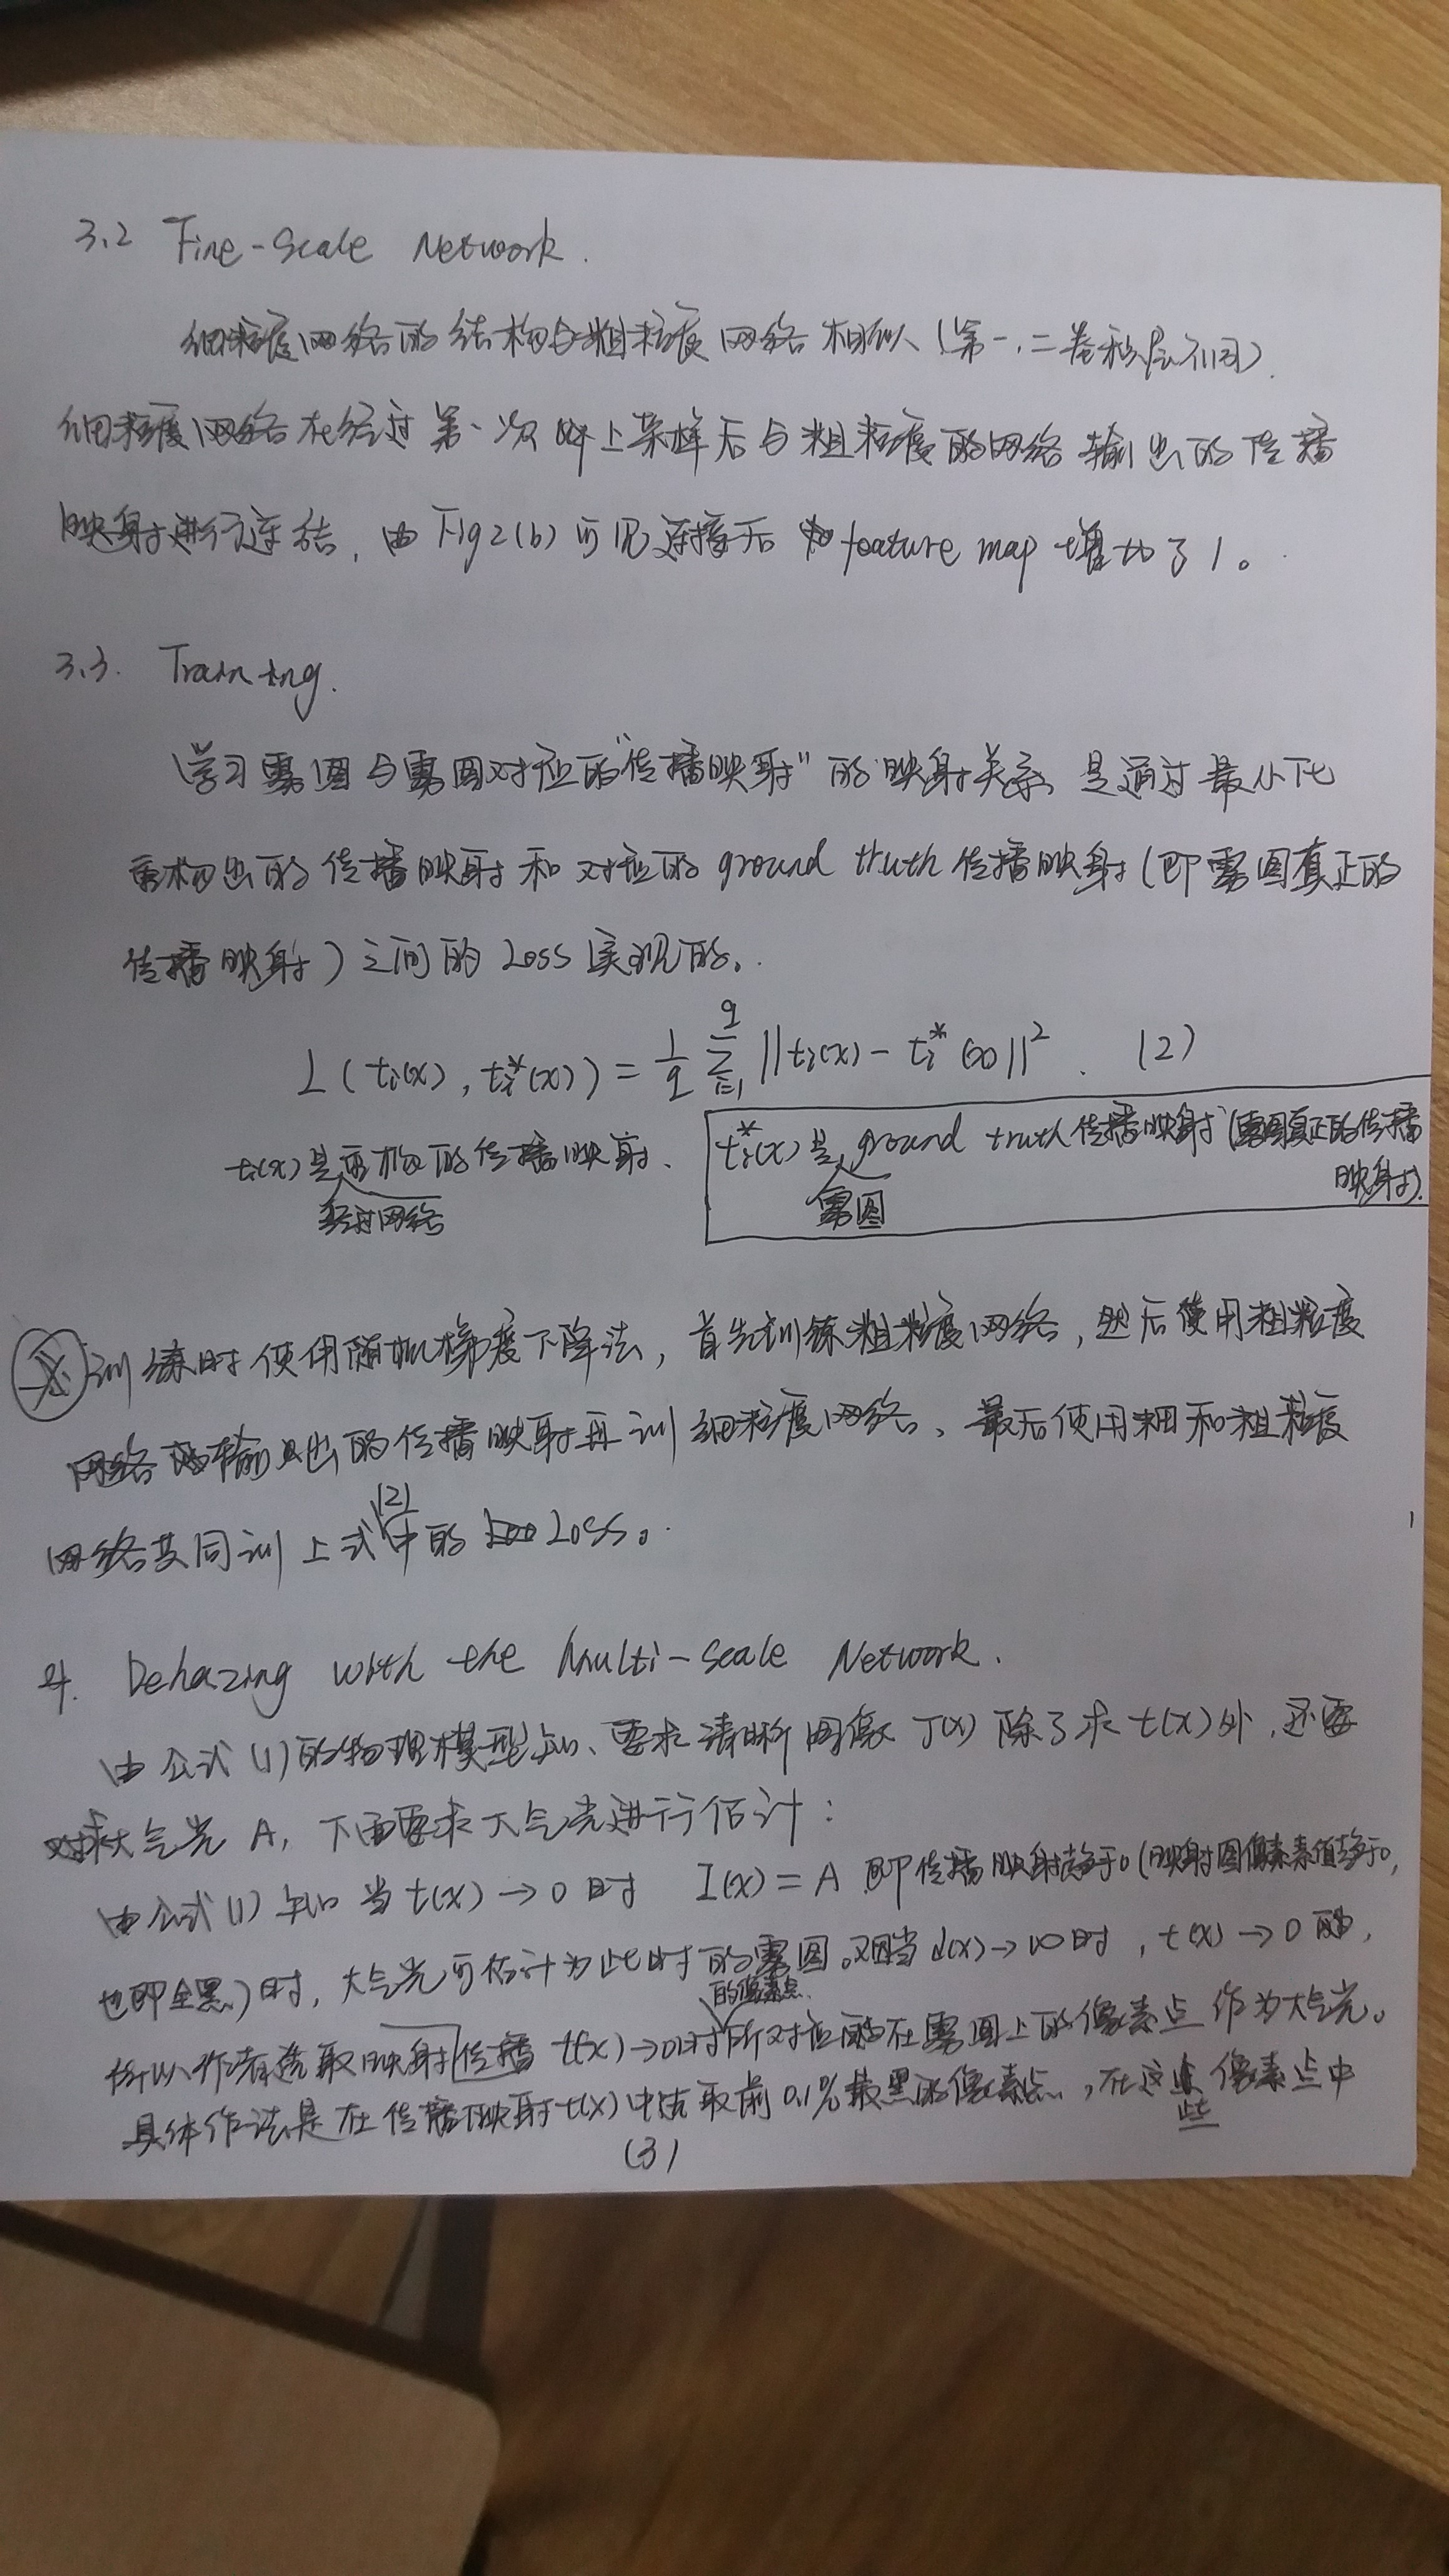 3.2 Fine-Scale Network.
细粒度网络的结构与粗粒度网络相似(第一,二卷积层不同).
细粒度网络在经过第一次上采样后与粗粒度的网络输出的传播
映射进行连结,由Fig2(b)可见连接后feature map增加了1。
3.3. Training.
学习雾图与雾图对应的"传播映射"的映射关系是通过最小化
重构出的传播映射和对应的ground truth传播映射(即雾图真正的
传播映射)之间的Loss实现的。
L(ti(x), ti*(x)) = 1/q Σ_{i=1}^{q} ||ti(x) - ti*(x)||². (2)
ti(x)是重构的传播映射、
经过网络
ti*(x)是ground truth传播映射(雾图真正的传播
映射).
雾图
训练时使用随机梯度下降法,首先训练粗粒度网络,然后使用粗粒度
网络输出的传播映射再训细粒度网络、最后使用细和粗粒度
网络共同训上式(2)中的Loss。
4. Dehazing with the Multi-scale Network.
由公式(1)的物理模型知、要求清晰图像J(x)除了求t(x)外,还要
求大气光A,下面要求大气光进行估计:
由公式(1)知当t(x)→0时 I(x)=A 即传播映射趋于0(映射图像素值趋于0,
也即全黑)时,大气光可估计为此时的雾图。又因当d(x)→∞时,t(x)→0,
所以作者选取映射传播t(x)→0时的像素点所对应在雾图上的像素点作为大气光。
具体作法是在传播映射t(x)中选取前0.1%最黑的像素点,在这些像素点中
(3)